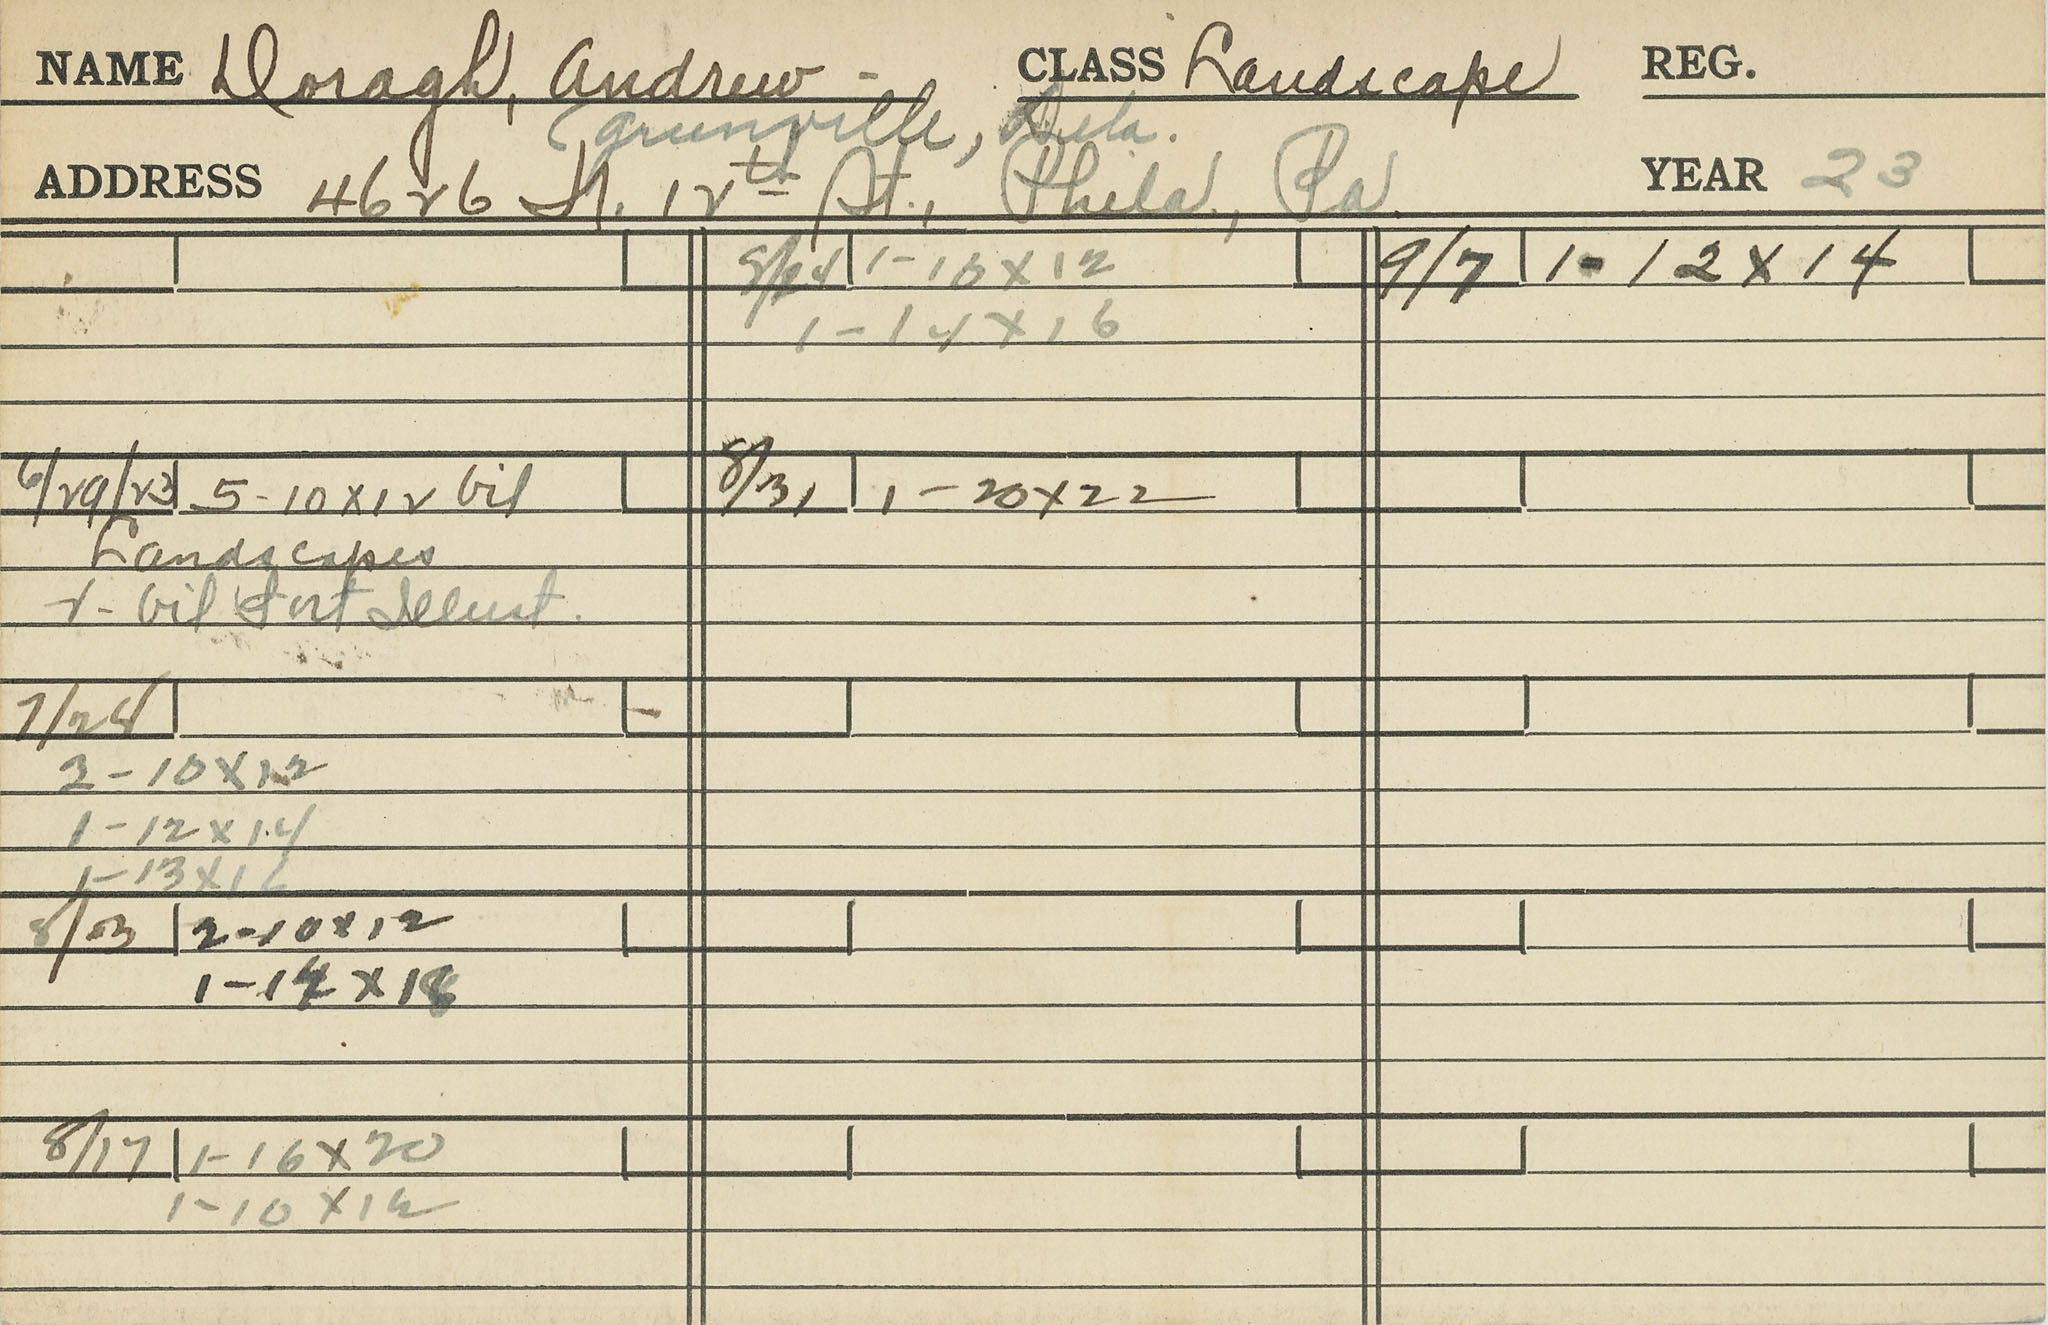 NAME Doragh, Andrew - CLASS Landscape REG.
Greenville, Dela.
ADDRESS 4626 N. 12th St., Phila., Pa. YEAR 23
6/29/23 5-10x12 Oil
Landscapes
2- Oil Illust.
7/28
2-10x12
1-12x14
1-13x16
8/03 2-10x12
1-14x18
8/17 1-16x20
8/24 1-10x12
1-14x16
8/31 1-20x22
9/7 1-12x14